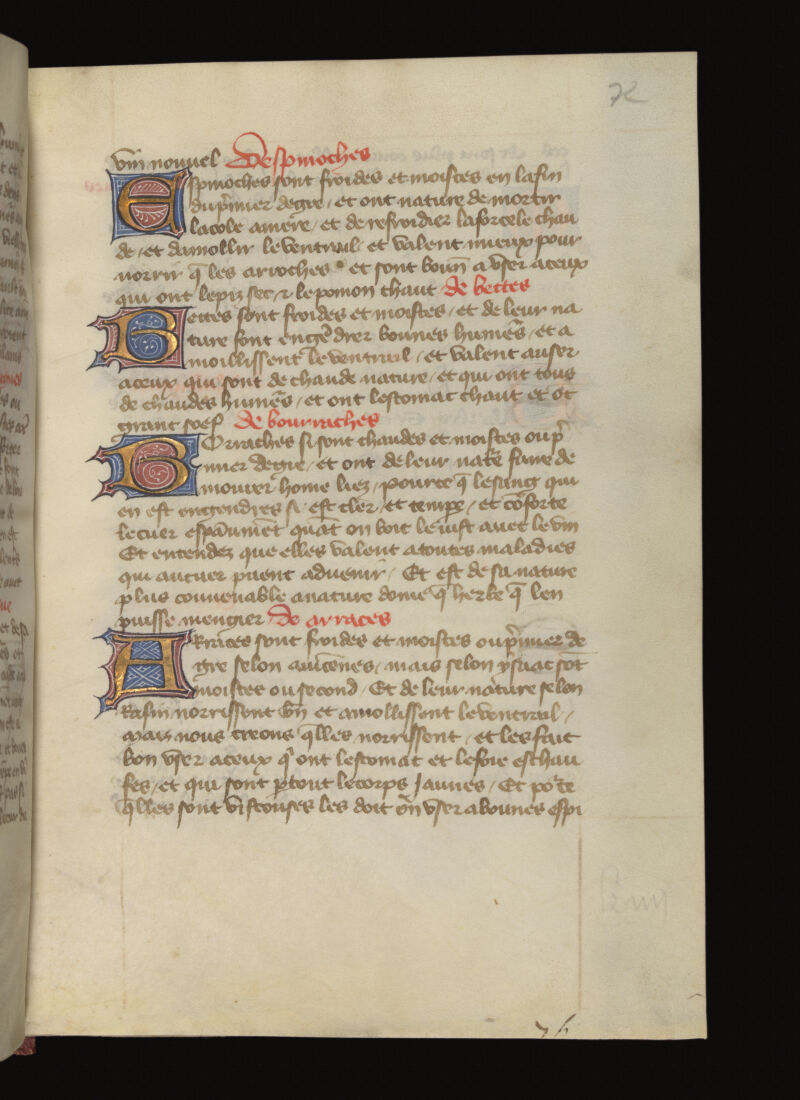 72
vin nouuel De spinoches
Espinoches sont froides et moistes en la fin
du p̄mier degre / et ont nature de mortir
la cole amere / et de refroidier la forcele chau
de / et damollir le ventrail et valent mieux pour
norrir q̄ les arroches et sont boun a vser a ceux
qui ont le piz sec et le pomon chaut de bettes
Bettes sont froides et moistes / et de leur na
ture sont engēdrer bounes humeʳs / et a
moillissent le ventrail / et valent a vser
a ceux qui sont de chaude nature / et qui ont tous
de chaudes humeʳs / et ont lestomac chaut et ōt
grant soef de bourraches
Borraches si sont chaudes et moistes ou p̄
mier degre / et ont de leur natͬe faire de
mourer home liez / pource q̄ le sang qui
en est engendres si est cler / et tempe / et cōforte
le cuer esp̄aumēt quāt on boit le iust auec le vin
Et entendez que elles valent a toutes maladies
qui au cuer puent aduenir / Et est de sa nature
plus conuenable a nature dome q̄ herbe q̄ len
puisse mengier De arraces
Arraces sont froides et moistes ou p̄mier de
gre selon auicenes / mais selon ysaac sōt
moistes ou second / Et de leur nature selon
Rasin norrissent bn̄ et amollissent le ventrail /
Mais nous creons q̄lles norrissent / et les fait
bon vser a ceux q̄ ont lestomac et le foie eschau
fes / et qui sont p̄tout le corps Jaunes / Et po͛ce
q̄lles sont viscouses les doit on vser a bounes espi